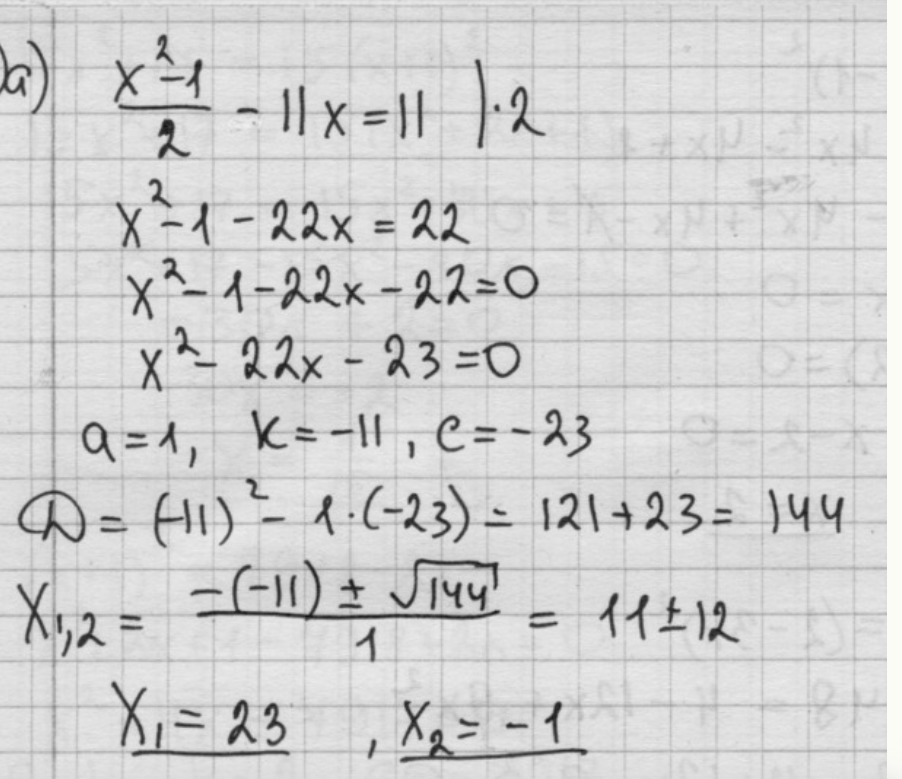 a) (x²-1)/2 - 11x = 11 | ·2
x² - 1 - 22x = 22
x² - 1 - 22x - 22 = 0
x² - 22x - 23 = 0
a = 1, k = -11, c = -23
D = (-11)² - 1·(-23) = 121 + 23 = 144
x₁,₂ = (-(-11) ± √144)/1 = 11 ± 12
x₁ = 23, x₂ = -1